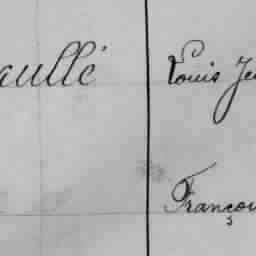 aullé Louis Je
Françoi